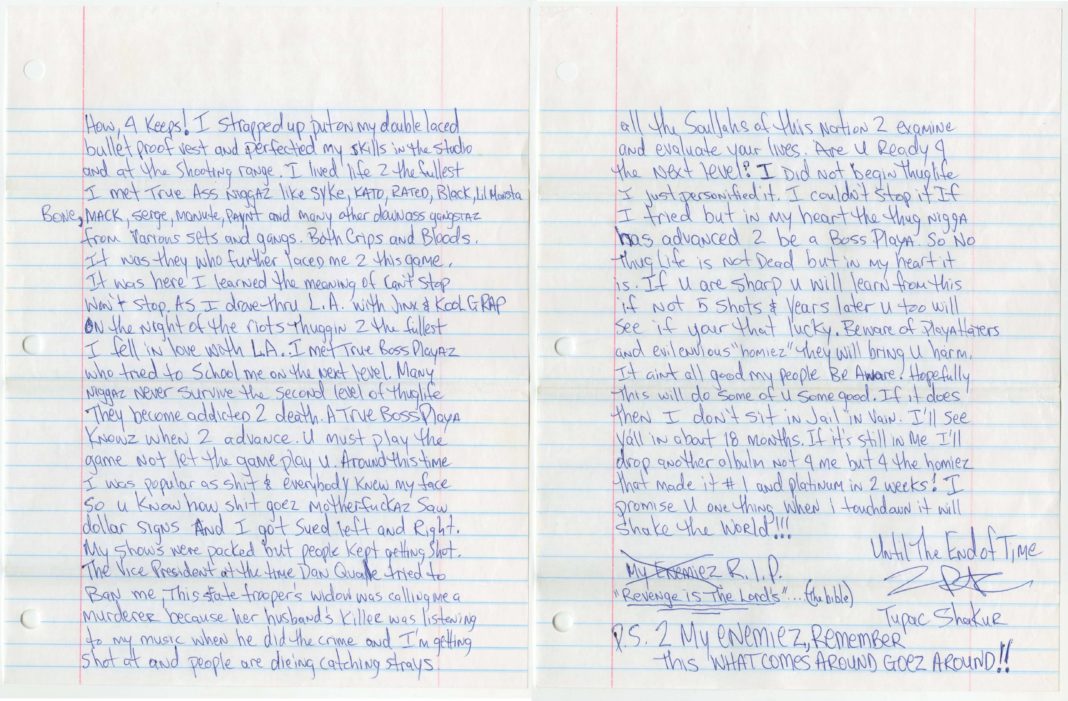 How, 4 Keeps! I strapped up put on my double laced
bullet proof vest and perfected my skills in the studio
and at the shooting range. I lived life 2 the fullest
I met True Ass Niggaz like Syke, KATO, RATED, Black, Lil Monsta
Bone, MACK, serge, manute, Paynt and many other downass gangstaz
from various sets and gangs. Both Crips and Bloods.
It was they who further laced me 2 this game.
It was here I learned the meaning of Can't stop
Won't stop. As I drove thru L.A. with Jinx & Kool G RAP
ON the night of the riots thuggin 2 the fullest
I fell in love with L.A.. I met True Boss Playaz
who tried to School me on the next level. Many
Niggaz Never survive the second level of thuglife
They become addicted 2 death. A True Boss Playa
Knowz when 2 advance. U must play the
game not let the game play u. Around this time
I was popular as shit & everybody knew my face
so u know how shit goez Motherfuckaz saw
dollar signs And I got sued left and Right.
My shows were packed but people kept getting shot.
The Vice President at the time Dan Quale tried to
Ban me. This state trooper's widow was calling me a
murderer because her husband's killer was listening
to my music when he did the crime and I'm getting
shot at and people are dieing catching strays
all the Souljahs of this Nation 2 examine
and evaluate your lives. Are U Ready 4
the Next level? I Did not begin thuglife
I just personified it. I couldn't stop it If
I tried but in my heart the thug nigga
has advanced 2 be a Boss Playa. So No
Thug Life is not Dead but in my heart it
is. If u are sharp u will learn from this
if not 5 shots & years later u too will
see if your that lucky. Beware of PlayaHaters
and evil envious "homiez" they will bring u harm.
It aint all good my people Be Aware. Hopefully
This will do some of u some good. If it does
then I don't sit in Jail in Vain. I'll see
Yall in about 18 months. If it's still in Me I'll
drop another albulm not 4 me but 4 the homiez
that made it #1 and platinum in 2 weeks! I
promise U one thing when I touchdown it will
shake the World!!!
Until The End of Time
My Enemiez R.I.P.
"Revenge is The Lord's"... (the bible)
Tupac Shakur
P.S. 2 My enemiez, Remember
this WHAT COMES AROUND GOEZ AROUND!!